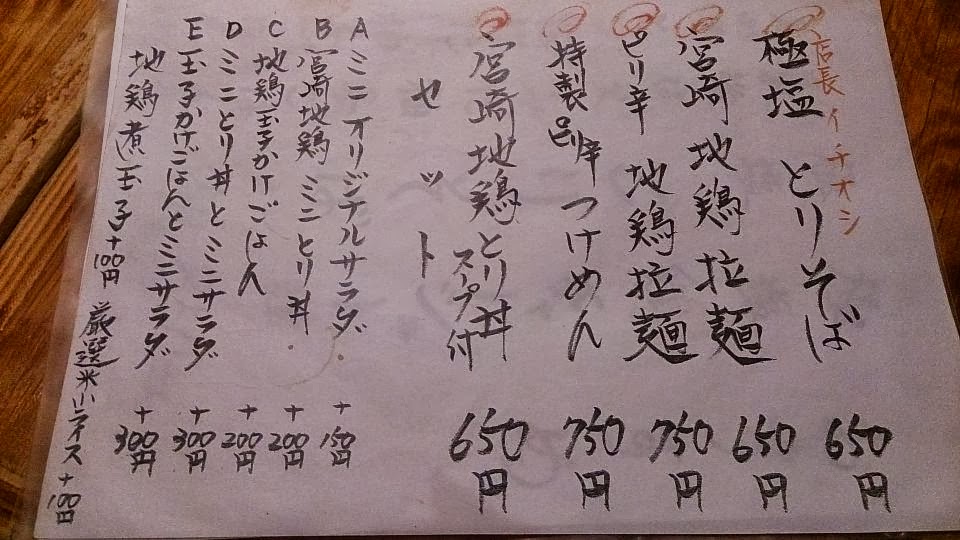 店長イチオシ
極塩 とりそば 650円
宮崎地鶏拉麺 650円
ピリ辛 地鶏拉麺 750円
特製ピリ辛つけめん 750円
宮崎地鶏とり丼 スープ付 650円
セット
A ミニオリジナルサラダ +150円
B 宮崎地鶏ミニとり丼 +200円
C 地鶏玉子かけごはん +200円
D ミニとり丼とミニサラダ +300円
E 玉子かけごはんとミニサラダ +300円
地鶏煮玉子+100円
厳選米小ライス+100円